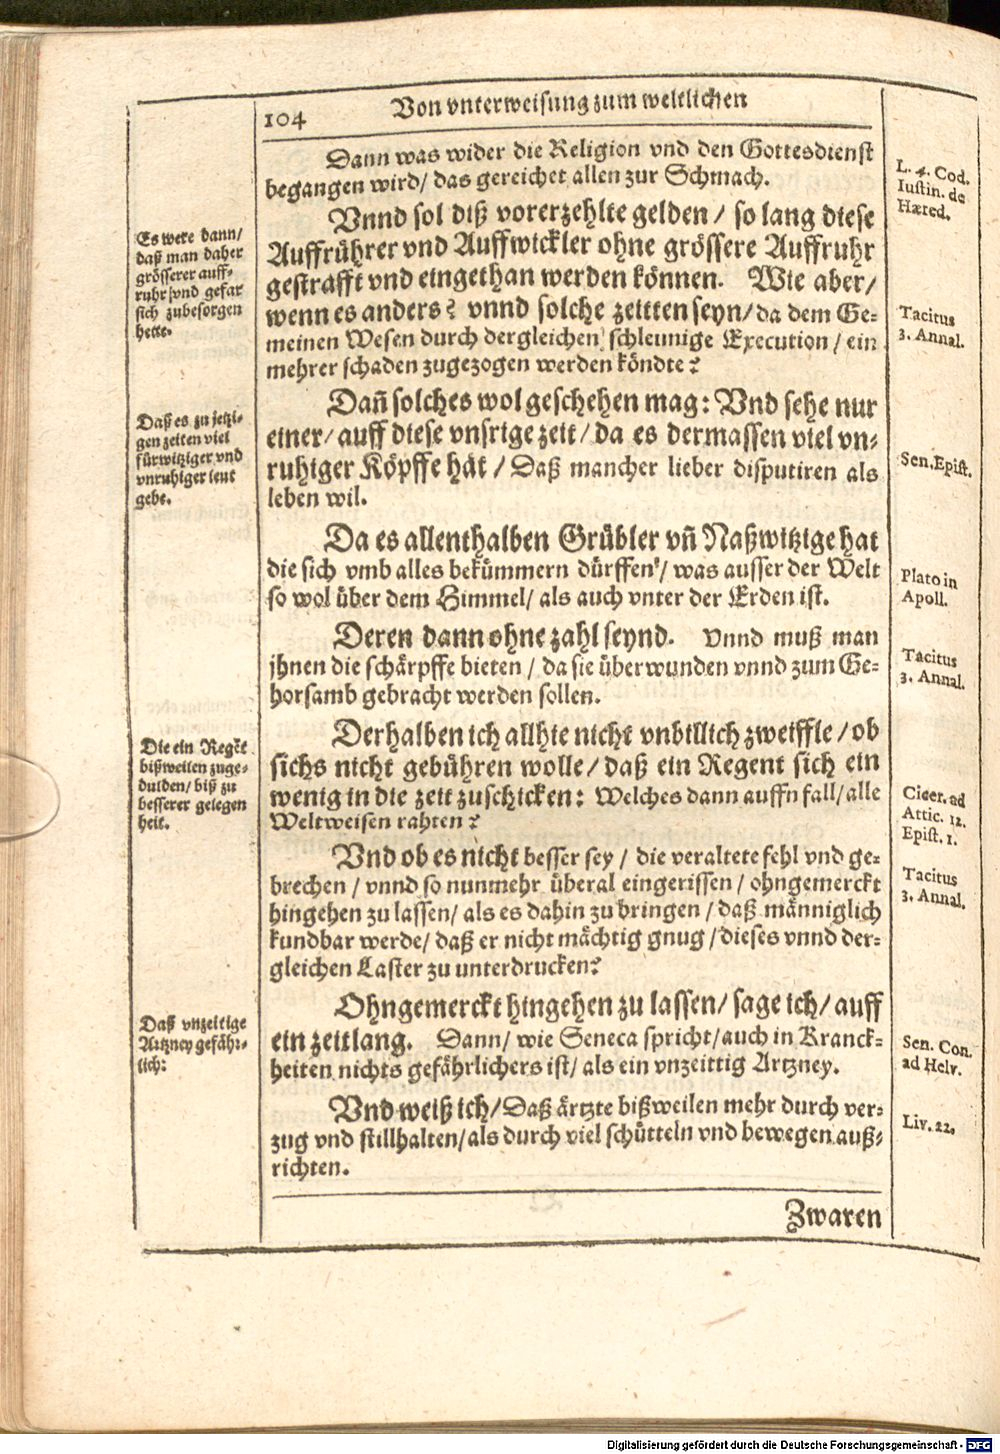 104
Von vnterweisung zum weltlichen
Dann was wider die Religion vnd den Gottesdienst
begangen wird/ das gereichet allen zur Schmach.
L. 4. Cod.
Iustin. de
Hæred.
Vnnd sol diß vorerzehlte gelden/ so lang diese
Auffrührer vnd Auffwickler ohne grössere Auffruhr
gestrafft vnd eingethan werden können. Wie aber/
wenn es anders? vnnd solche zeittten seyn/ da dem Ge-
meinen Wesen durch dergleichen schleunige Execution/ ein
mehrer schaden zugezogen werden köndte?
Es were dann/
daß man daher
grösserer auff-
ruhr/vnd gefar
sich zubesorgen
hette.
Tacitus
3. Annal.
Dañ solches wol geschehen mag: Vnd sehe nur
einer/ auff diese vnsrige zeit/ da es dermassen viel vn-
ruhiger Köpffe hat/ Daß mancher lieber disputiren als
leben wil.
Daß es zu jetzi-
gen zeiten viel
fürwitziger vnd
vnruhiger leut
gebe.
Sen. Epist.
Da es allenthalben Grübler vñ Naßwitzige hat
die sich vmb alles bekümmern dürffen/ was ausser der Welt
so wol über dem Himmel/ als auch vnter der Erden ist.
Plato in
Apoll.
Deren dann ohne zahl seynd. Vnnd muß man
jhnen die schärpffe bieten/ da sie überwunden vnnd zum Ge-
horsamb gebracht werden sollen.
Tacitus
3. Annal.
Derhalben ich allhie nicht vnbillich zweiffle/ ob
sichs nicht gebühren wolle/ daß ein Regent sich ein
wenig in die zeit zuschicken: Welches dann auffn fall/ alle
Weltweisen rahten?
Die ein Regēt
bißweilen zuge-
dulden/ biß zu
besserer gelegen
heit.
Cicer. ad
Attic. 12.
Epist. 1.
Vnd ob es nicht besser sey/ die veraltete fehl vnd ge-
brechen/ vnnd so nunmehr überal eingerissen/ ohngemerckt
hingehen zu lassen/ als es dahin zu bringen/ daß männiglich
kundbar werde/ daß er nicht mächtig gnug/ dieses vnnd der-
gleichen Laster zu unterdrucken?
Tacitus
3. Annal.
Ohngemerckt hingehen zu lassen/ sage ich/ auff
ein zeitlang. Dann/ wie Seneca spricht/ auch in Kranck-
heiten nichts gefährlichers ist/ als ein vnzeittig Artzney.
Daß vnzeitige
Artzney gefähr-
lich:
Sen. Con.
ad Helv.
Vnd weiß ich/ Daß ärtzte bißweilen mehr durch ver-
zug vnd stillhalten/ als durch viel schütteln vnd bewegen auß-
richten.
Liv. 22.
Zwaren
Digitalisierung gefördert durch die Deutsche Forschungsgemeinschaft - DFG